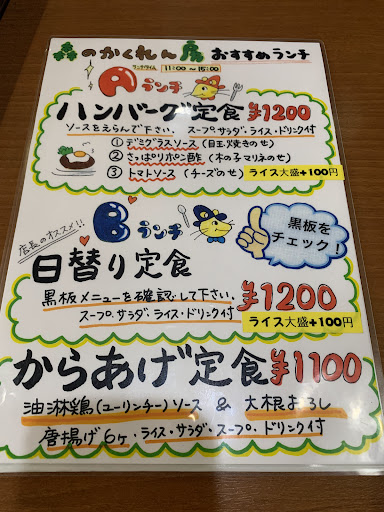 森のかくれん房 おすすめランチ
ランチタイム 11:00〜15:00
Aランチ
ハンバーグ定食 ¥1200
ソースをえらんで下さい。 スープ.サラダ.ライス・ドリンク付
① デミグラスソース (目玉焼きのせ)
② さっぱりポン酢 (木の子マリネのせ)
③ トマトソース (チーズのせ)
ライス大盛+100円
店長のオススメ!!
Bランチ
黒板を
チェック!
日替り定食
黒板メニューを確認して下さい。
¥1200
スープ.サラダ.ライス・ドリンク付
ライス大盛+100円
からあげ定食 ¥1100
油淋鶏(ユーリンチー)ソース & 大根おろし
唐揚げ6ヶ・ライス・サラダ・スープ・ドリンク付